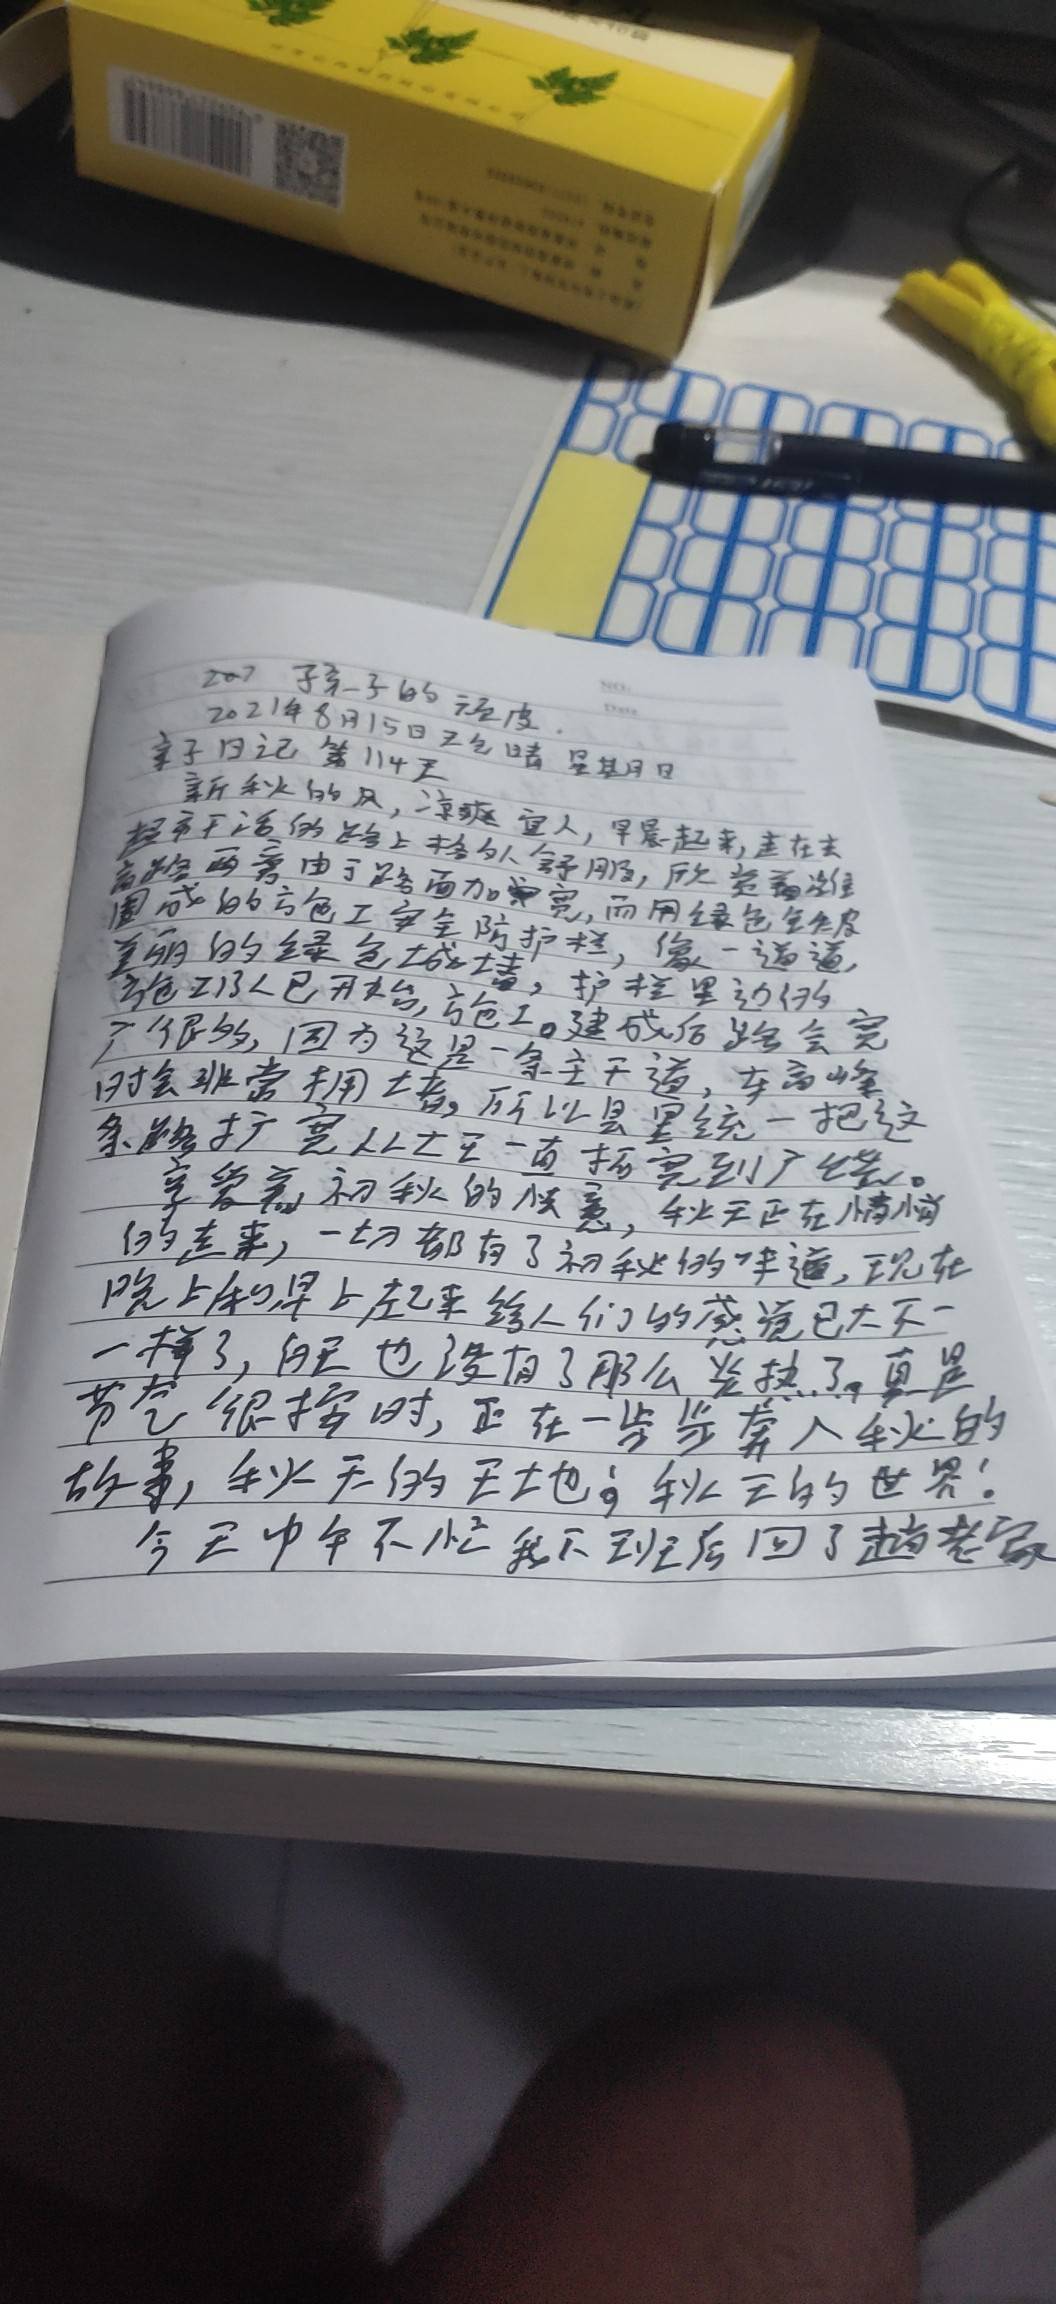 207 孩子的顽皮.
NO:
Date
2021年8月15日天气晴 星期日
亲子日记 第114天
新秋的风,凉爽宜人,早晨起来,走在去
超市干活的路上格外舒服,欣赏着
路两旁由于路面加宽,而用绿色铁皮
围成的施工安全防护栏,像一道道
美丽的绿色城墙,护栏里边的
施工队已开始施工。建成后路会宽
广很多,因为这是一条主干道,车高峰
时会非常拥堵,所以县里统一把这
条路扩宽从大王一直拓宽到
享受着初秋的惬意,秋天正在悄悄
的走来,一切都有了初秋的味道,现在
晚上和早上起来给人们的感觉已大不一
一样了,白天也没有了那么炎热了,真是
节气很按时,正在一步步奔入秋的
故事,秋天的天地;秋天的世界!
今天中午不忙我下班后回了趟老家